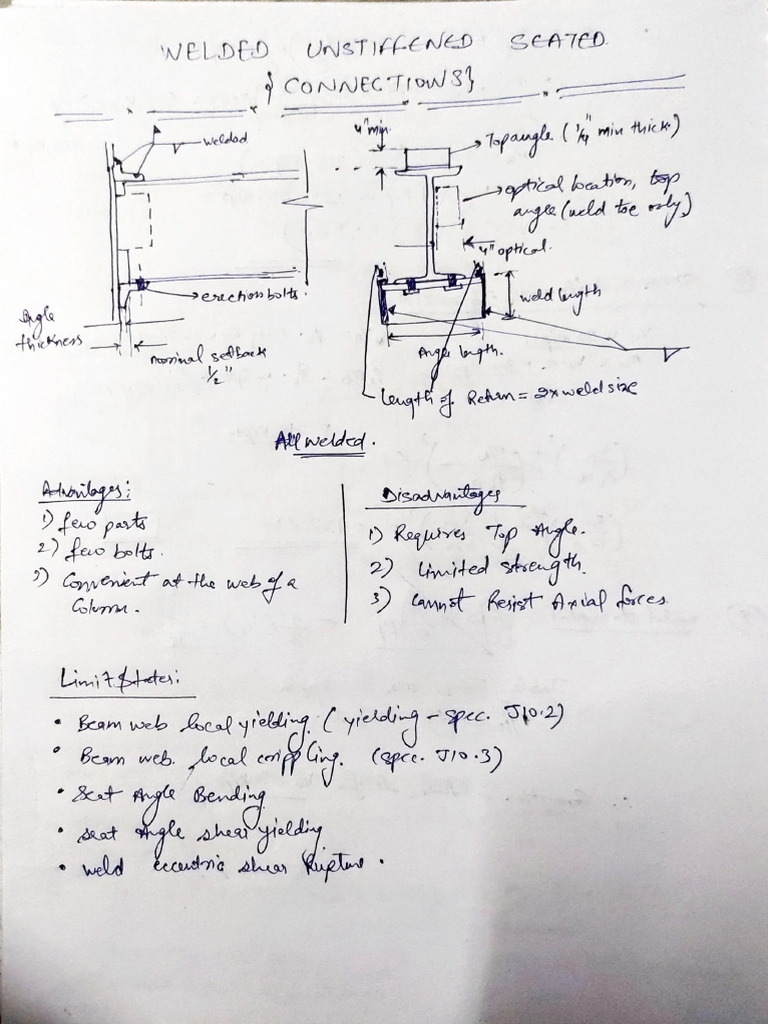 WELDED UNSTIFFENED SEATED
{CONNECTIONS}
welded
4" min.
Top angle (1/4" min thick.)
optical location, top
angle (weld toe only)
4" optical.
erection bolts.
weld length
Angle
thickness
nominal setback
1/2"
Angle length.
Length of Return = 2x weld size
All welded.
Advantages:
Disadvantages
1) few parts
2) few bolts.
3) Convenient at the web of a
Column.
1) Requires Top Angle.
2) Limited strength.
3) Cannot Resist Axial forces.
Limit States:
• Beam web local yielding. (yielding - spec. J10.2)
• Beam web. local crippling. (spec. J10.3)
• Seat Angle Bending
• seat Angle shear yielding
• weld eccentric shear Rupture.